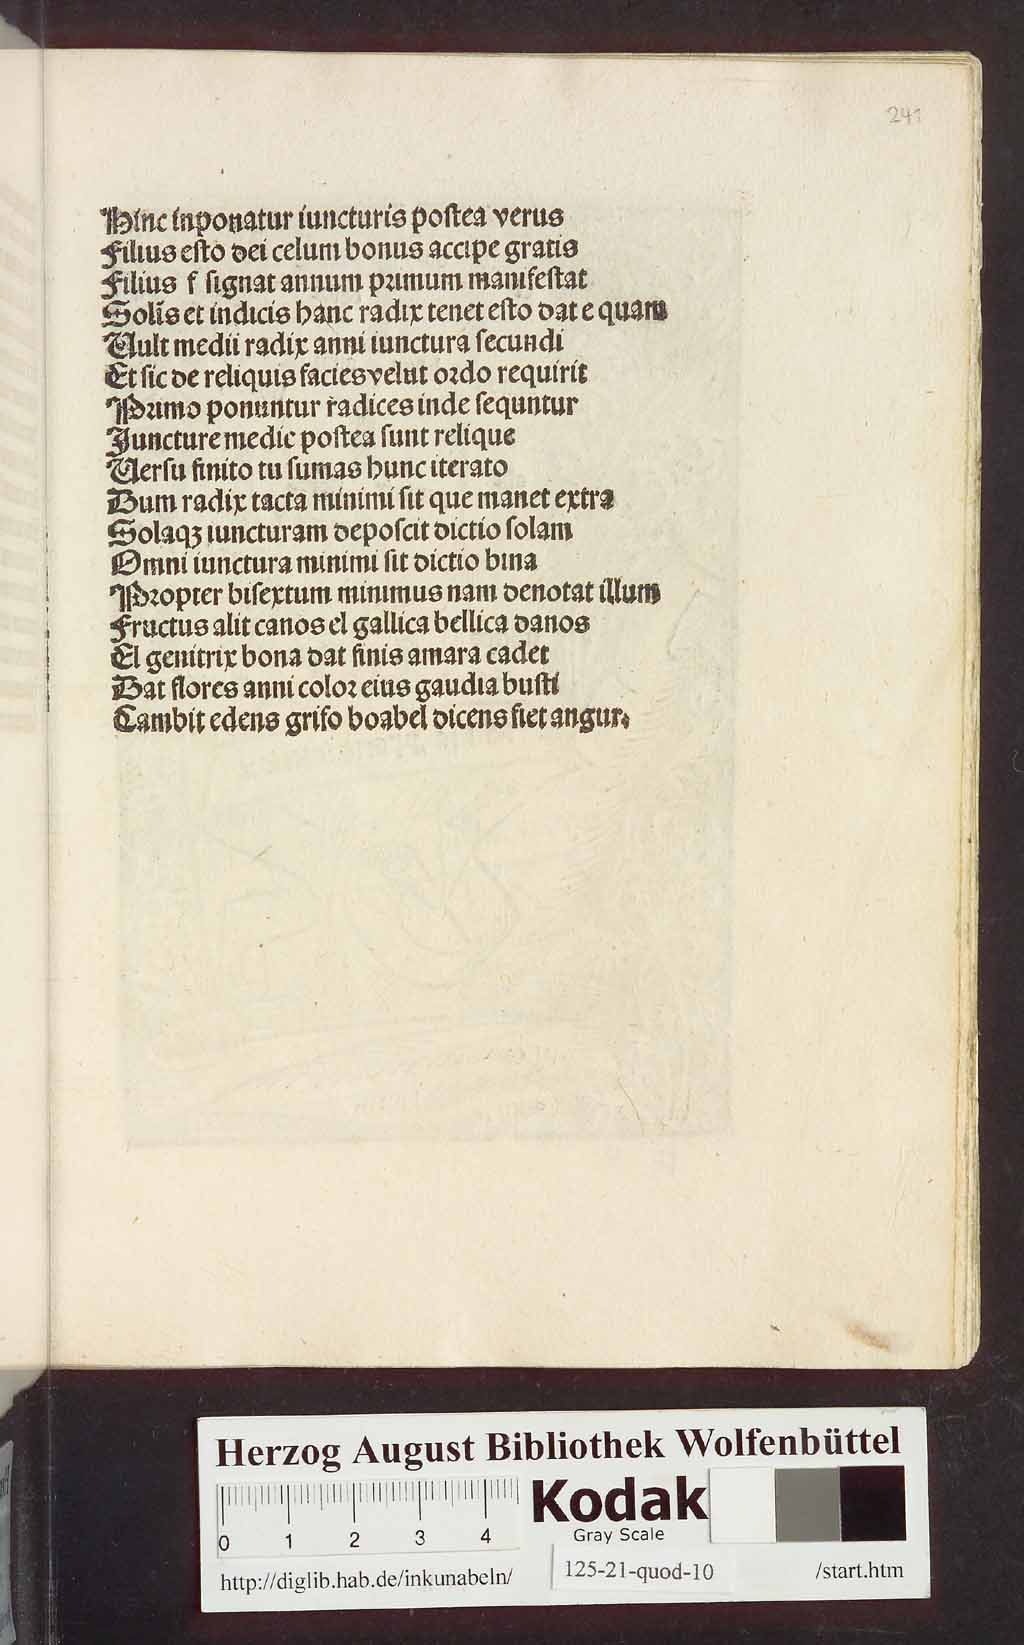 241
Hinc inponatur iuncturis postea verus
Filius esto dei celum bonus accipe gratis
Filius f signat annum primum manifestat
Solis et indicis hanc radix tenet esto dat e quam
Vult medii radix anni iunctura secundi
Et sic de reliquis facies velut ordo requirit
Primo ponuntur radices inde sequntur
Juncture medie postea sunt relique
Versu finito tu sumas hunc iterato
Dum radix tacta minimi sit que manet extra
Solaqꝫ iuncturam deposcit dictio solam
Omni iunctura minimi sit dictio bina
Propter bisextum minimus nam denotat illum
Fructus alit canos el gallica bellica danos
El genitrix bona dat finis amara cadet
Dat flores anni color eius gaudia busti
Cambit edens grifo boabel dicens fiet angur.
Herzog August Bibliothek Wolfenbüttel
0 1 2 3 4
Kodak
Gray Scale
http://diglib.hab.de/inkunabeln/ 125-21-quod-10 /start.htm